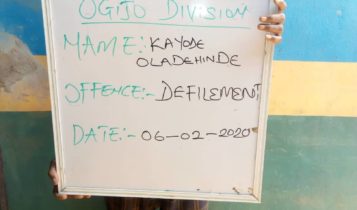 OGIJO DIVISION
MAME:- KAYODE
OLADEHINDE
OFFENCE:- DEFILEMENT
DATE:- 06-02-2020